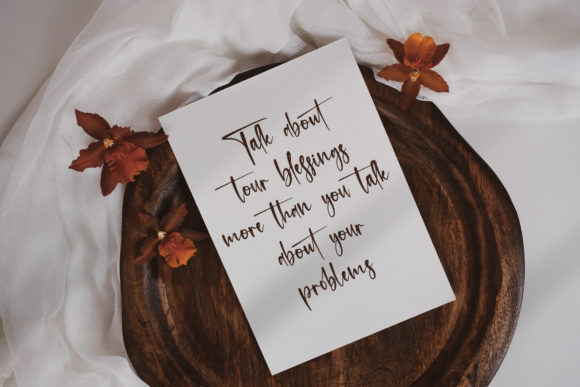 Talk about
tour blessings
more than you talk
about your
problems